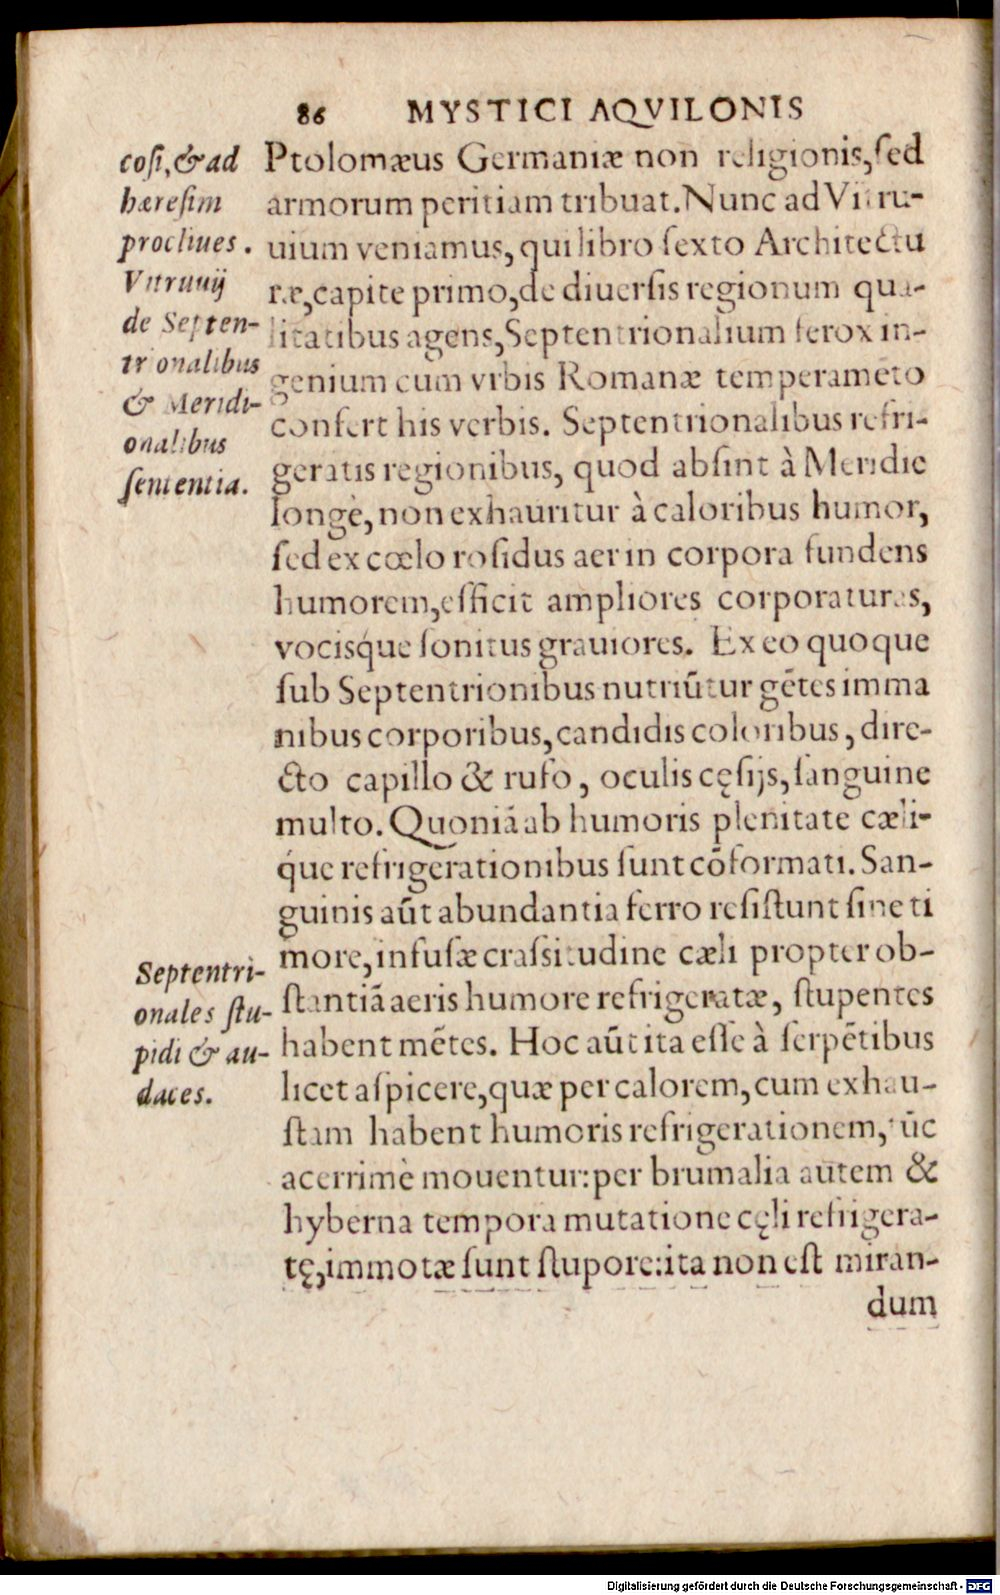 86 MYSTICI AQVILONIS
coſi, & ad
hæreſim
procliues.
Vitruuij
de Septen-
trionalibus
& Meridi-
onalibus
ſententia.
Ptolomæus Germaniæ non religionis, ſed
armorum peritiam tribuat. Nunc ad Vitru-
uium veniamus, qui libro ſexto Architectu
ræ, capite primo, de diuerſis regionum qua-
litatibus agens, Septentrionalium ferox in-
genium cum vrbis Romanæ temperamēto
confert his verbis. Septentrionalibus refri-
geratis regionibus, quod abſint à Meridie
longè, non exhauritur à caloribus humor,
ſed ex cœlo roſidus aer in corpora fundens
humorem, efficit ampliores corporaturas,
vocisq́ue ſonitus grauiores. Ex eo quoque
ſub Septentrionibus nutriūtur gētes imma
nibus corporibus, candidis coloribus, dire-
cto capillo & rufo, oculis cęſijs, ſanguine
multo. Quoniā ab humoris plenitate cæli-
q́ue refrigerationibus ſunt cōformati. San-
guinis aūt abundantia ferro reſiſtunt ſine ti
more, infuſæ craſsitudine cæli propter ob-
ſtantiā aeris humore refrigeratæ, ſtupentes
habent mētes. Hoc aūt ita eſſe à ſerpētibus
licet aſpicere, quæ per calorem, cum exhau-
ſtam habent humoris refrigerationem, tūc
acerrimè mouentur: per brumalia autem &
hyberna tempora mutatione cęli refrigera-
tę, immotæ ſunt ſtupore: ita non eſt miran-
dum
Septentri-
onales ſtu-
pidi & au-
daces.
Digitalisierung gefördert durch die Deutsche Forschungsgemeinschaft - DFG